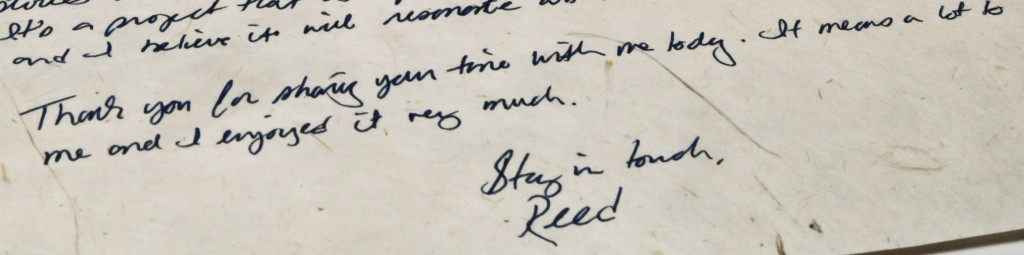 It's a project that is
and I believe it will resonate
Thank you for sharing your time with me today. It means a lot to
me and I enjoyed it very much.
Stay in touch,
Reed